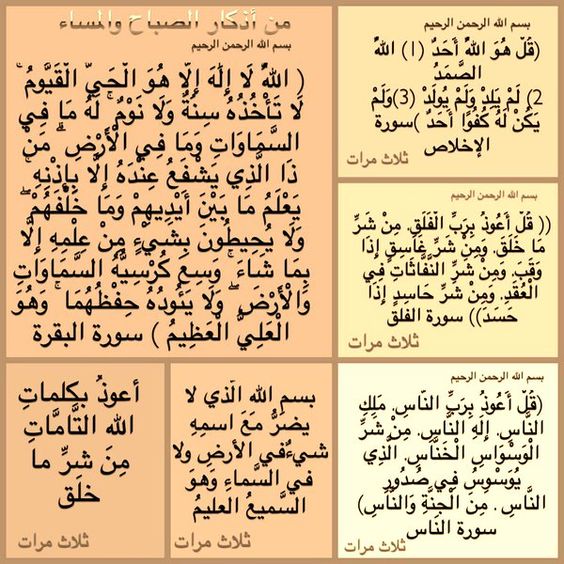 من أذكار الصباح والمساء
بسم الله الرحمن الرحيم
( اللَّهُ لَا إِلَٰهَ إِلَّا هُوَ الْحَيُّ الْقَيُّومُ ۚ
لَا تَأْخُذُهُ سِنَةٌ وَلَا نَوْمٌ ۚ لَهُ مَا فِي
السَّمَاوَاتِ وَمَا فِي الْأَرْضِ ۗ مَنْ
ذَا الَّذِي يَشْفَعُ عِنْدَهُ إِلَّا بِإِذْنِهِ ۚ
يَعْلَمُ مَا بَيْنَ أَيْدِيهِمْ وَمَا خَلْفَهُمْ ۖ
وَلَا يُحِيطُونَ بِشَيْءٍ مِنْ عِلْمِهِ إِلَّا
بِمَا شَاءَ ۚ وَسِعَ كُرْسِيُّهُ السَّمَاوَاتِ
وَالْأَرْضَ ۖ وَلَا يَئُودُهُ حِفْظُهُمَا ۚ وَهُوَ
الْعَلِيُّ الْعَظِيمُ ) سورة البقرة
بسم الله الرحمن الرحيم
(قُلْ هُوَ اللَّهُ أَحَدٌ (1) اللَّهُ
الصَّمَدُ
2) لَمْ يَلِدْ وَلَمْ يُولَدْ (3)وَلَمْ
يَكُنْ لَهُ كُفُوًا أَحَدٌ )سورة
الإخلاص
ثلاث مرات
بسم الله الرحمن الرحيم
(( قُلْ أَعُوذُ بِرَبِّ الْفَلَقِ. مِنْ شَرِّ
مَا خَلَقَ. وَمِنْ شَرِّ غَاسِقٍ إِذَا
وَقَبَ. وَمِنْ شَرِّ النَّفَّاثَاتِ فِي
الْعُقَدِ. وَمِنْ شَرِّ حَاسِدٍ إِذَا
حَسَدَ)) سورة الفلق
ثلاث مرات
بسم الله الرحمن الرحيم
(قُلْ أَعُوذُ بِرَبِّ النَّاسِ. مَلِكِ
النَّاسِ. إِلَهِ النَّاسِ. مِنْ شَرِّ
الْوَسْوَاسِ الْخَنَّاسِ. الَّذِي
يُوَسْوِسُ فِي صُدُورِ
النَّاسِ. مِنَ الْجِنَّةِ وَالنَّاسِ)
سورة الناس
ثلاث مرات
بسم الله الّذي لا
يضرُّ مَعَ اسمِهِ
شيءٌ في الأرضِ ولا
في السَّماءِ وَهوَ
السَّميعُ العليمُ
ثلاث مرات
أعوذُ بكلماتِ
الله التَّامَّاتِ
مِنَ شرِّ ما
خلَق
ثلاث مرات